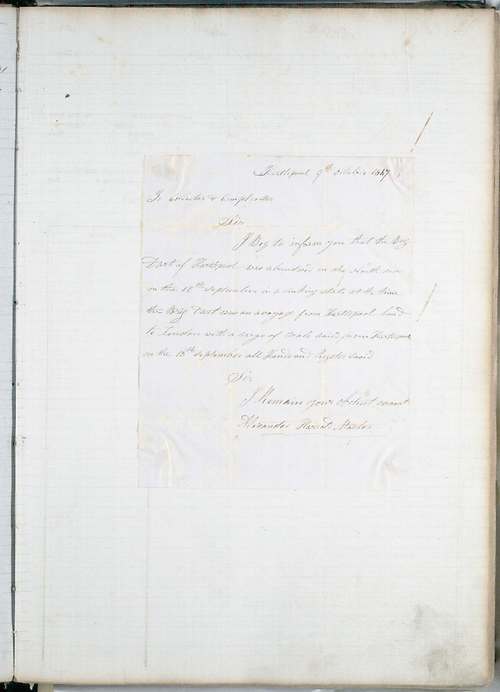 Hartlepool 9th October 1867
To
Sirs
I Beg to inform you that the Brig
Dart of Hartlepool was abandoned in the North sea
on the 15th September in a sinking state at the time
the Brig Dart was on a voyage from Hartlepool bound
to London with a cargo of Coals said from Hartlepool
on the 13th September all Hands and Papers Saved
Sir
I Remain your obedient servant
Alexander Master